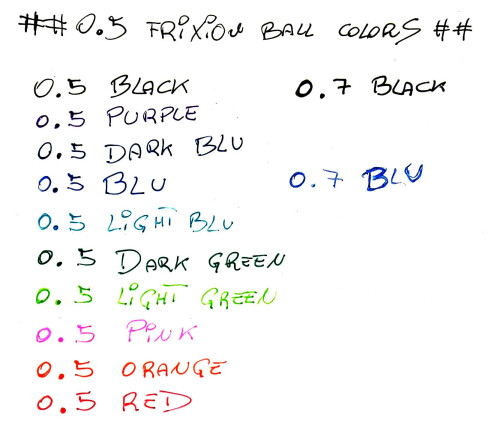 ## 0.5 FRiXiON BALL COLORS ##
0.5 BLACK
0.7 BLACK
0.5 PURPLE
0.5 DARK BLU
0.5 BLU
0.7 BLU
0.5 LiGHT BLU
0.5 DARK GREEN
0.5 LiGHT GREEN
0.5 PiNK
0.5 ORANGE
0.5 RED